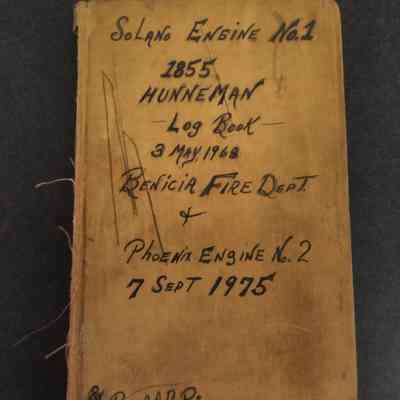 Solano Engine No. 1
1855
Hunneman
— Log Book —
3 May, 1968
Benicia Fire Dept.
&
Phoenix Engine No. 2
7 Sept 1975
By